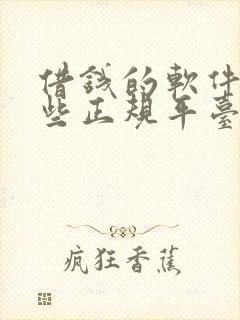 借錢的軟件
些正規平臺
疯狂香蕉